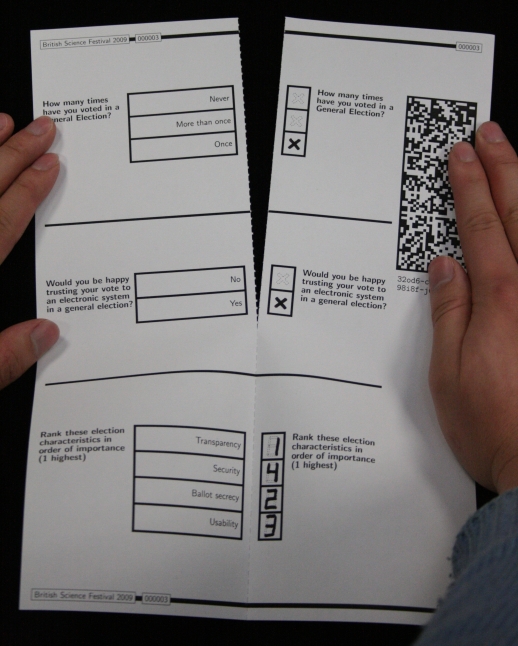 British Science Festival 2009 000003
How many times
have you voted in a
General Election?
Never
More than once
Once
Would you be happy
trusting your vote to
an electronic system
in a general election?
No
Yes
Rank these election
characteristics in
order of importance
(1 highest)
Transparency
Security
Ballot secrecy
Usability
British Science Festival 2009 000003
000003
How many times
have you voted in a
General Election?
Would you be happy
trusting your vote to
an electronic system
in a general election?
1
4
2
3
Rank these election
characteristics in
order of importance
(1 highest)